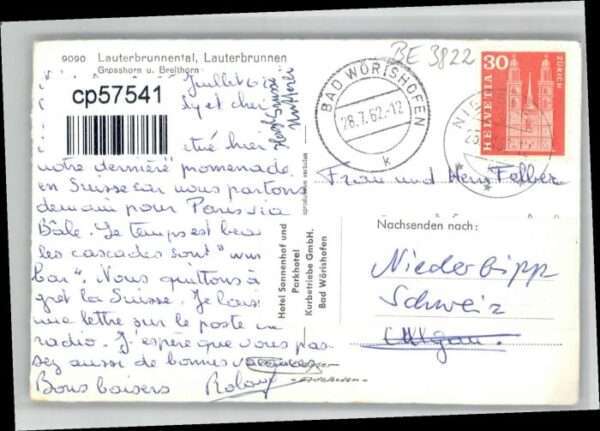 9090 Lauterbrunnental, Lauterbrunnen
Grosshorn u. Breithorn
BE 3822
cp57541
Juillet 62
30
HELVETIA
ZÜRICH
BAD WÖRISHOFEN
28.7.62-12
k
hier
notre dernière promenade
en Suisse car nous partons
demain pour Paris via
Bâle. Le temps est beau
les cascades sont "wun
bar". Nous quittons à
gret la Suisse. Je
une lettre sur le poste
radio. J'espère que vous pas-
sez aussi de bonnes vacances
Bons baisers
Frau und Herr Felber
Hotel Sonnenhof und
Parkhotel
Kurbetriebe GmbH.
Bad Wörishofen
Nachsenden nach:
Niederbipp
Schweiz